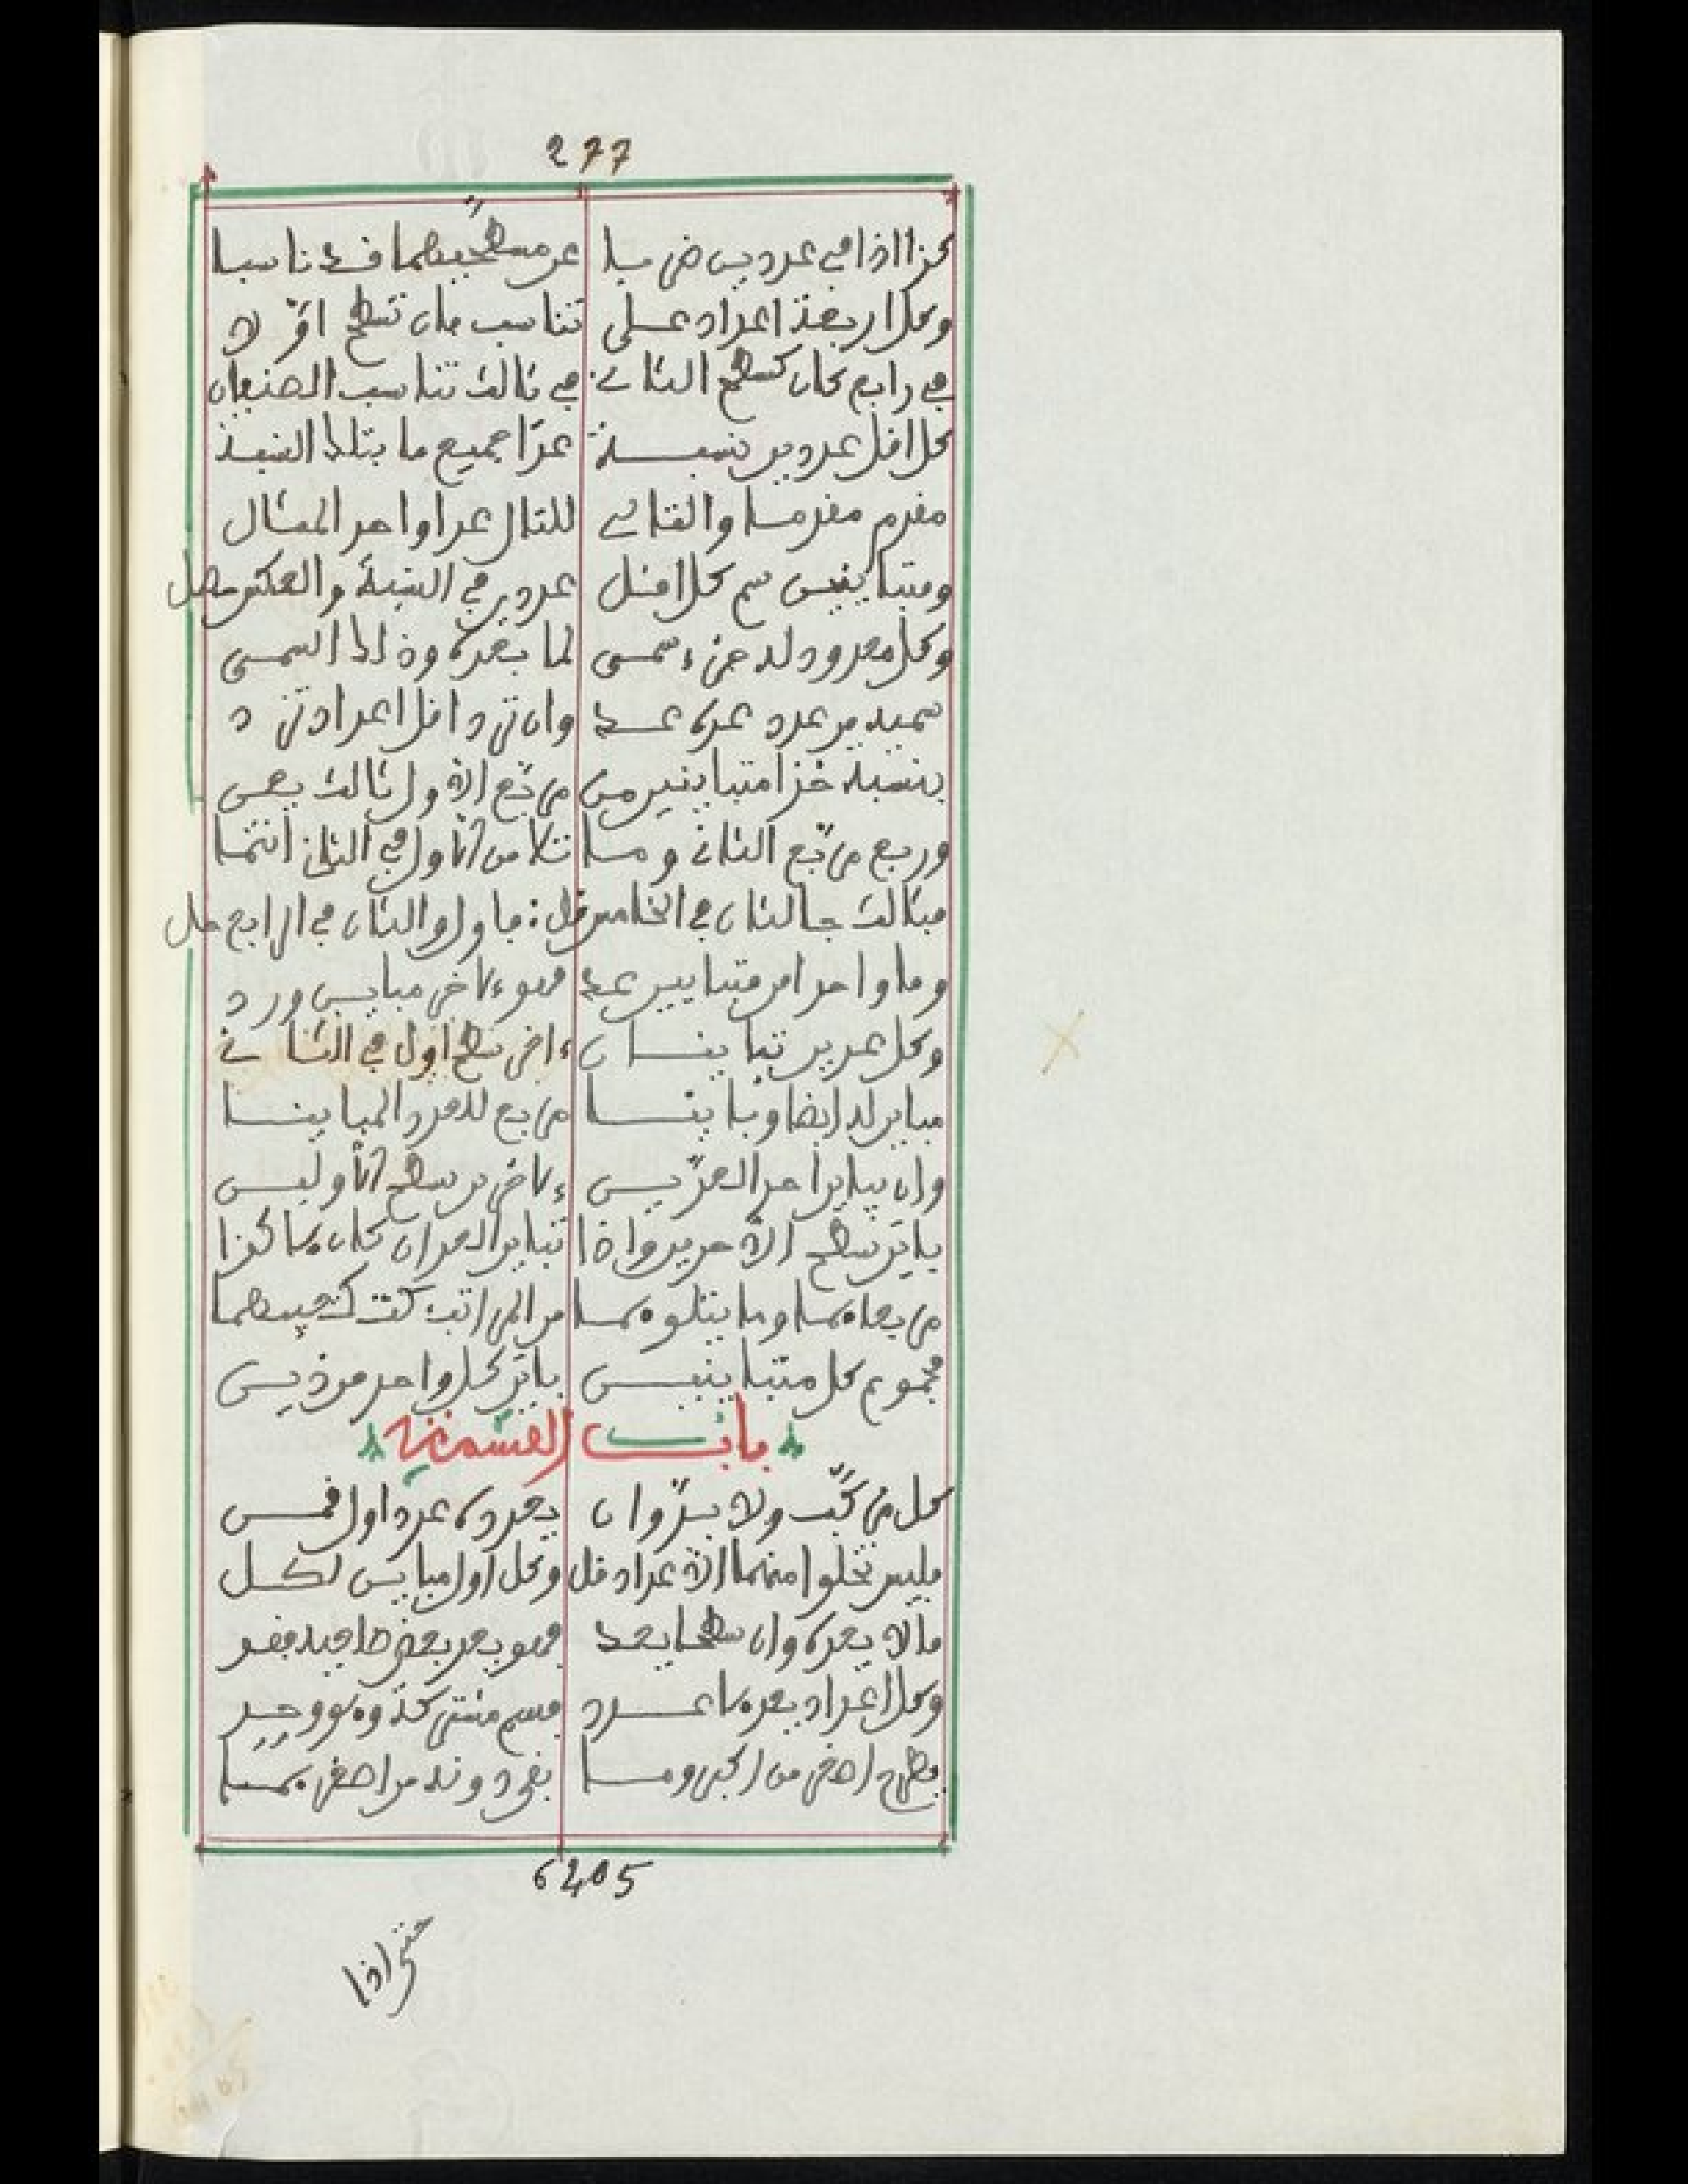 277
كذا اذا في عدديں ضربا عن مسطحيهما قد ناسبا
وكل اربعة اعداد على تناسب فان تسطح اوّلا
في رابع كان كسطح الثاني في ثالث تناسب الصنفان
كل اقل عددين نسبة عدّا جميع ما بتلك النسبة
مقدم مقدما والتالي للتال عدا واحد المثال
ومتباينين سم كل اقل عددين في النسبة والعكس حصل
وكل معدود له جزء سمى لما يعده وذاك السمى
سميه من عدد عده عد وان ترد اقل اعداد ترد
بنسبة خذ متباينين من مربع الاول ثالث يعن
وربع مربع الثاني وما تلا من الاول في الثان انتما
فثالث جا لثان في الخامس قل : فاول والثان في الرابع حل
وما واحدا من متباينين عد فهو ءلاخر مباين ورد
وكل عددين تباينان ءاخر سطح اول في الثاني
مباين له ايضا وباينا مربع للعدد المباينا
وان يباين احد العدّين ءلاخر من سطح الاولين
باين سطح الاخرين واذا تباين العدان كان هاكذا
مربعاهما وما يتلوهما من المراتب كت كعبيهما
مجموع كل متباينين باين كل واحد من ذين
باب القسمة
كل مركّب ولا بدّ وان يعده عدد اول قمن
فليس تخلوا منهما الاعداد قل وكل اول مباين لكل
ما لا يعده وان سطحا يعد فهو يعد بعض ضلعيه فقد
وكل اعداد يعدها عدد فسم مشتركة وهو وجد
بطرح اصغر من اكبر وما بقى دونه من اصغرهما
6205
حتى اذا